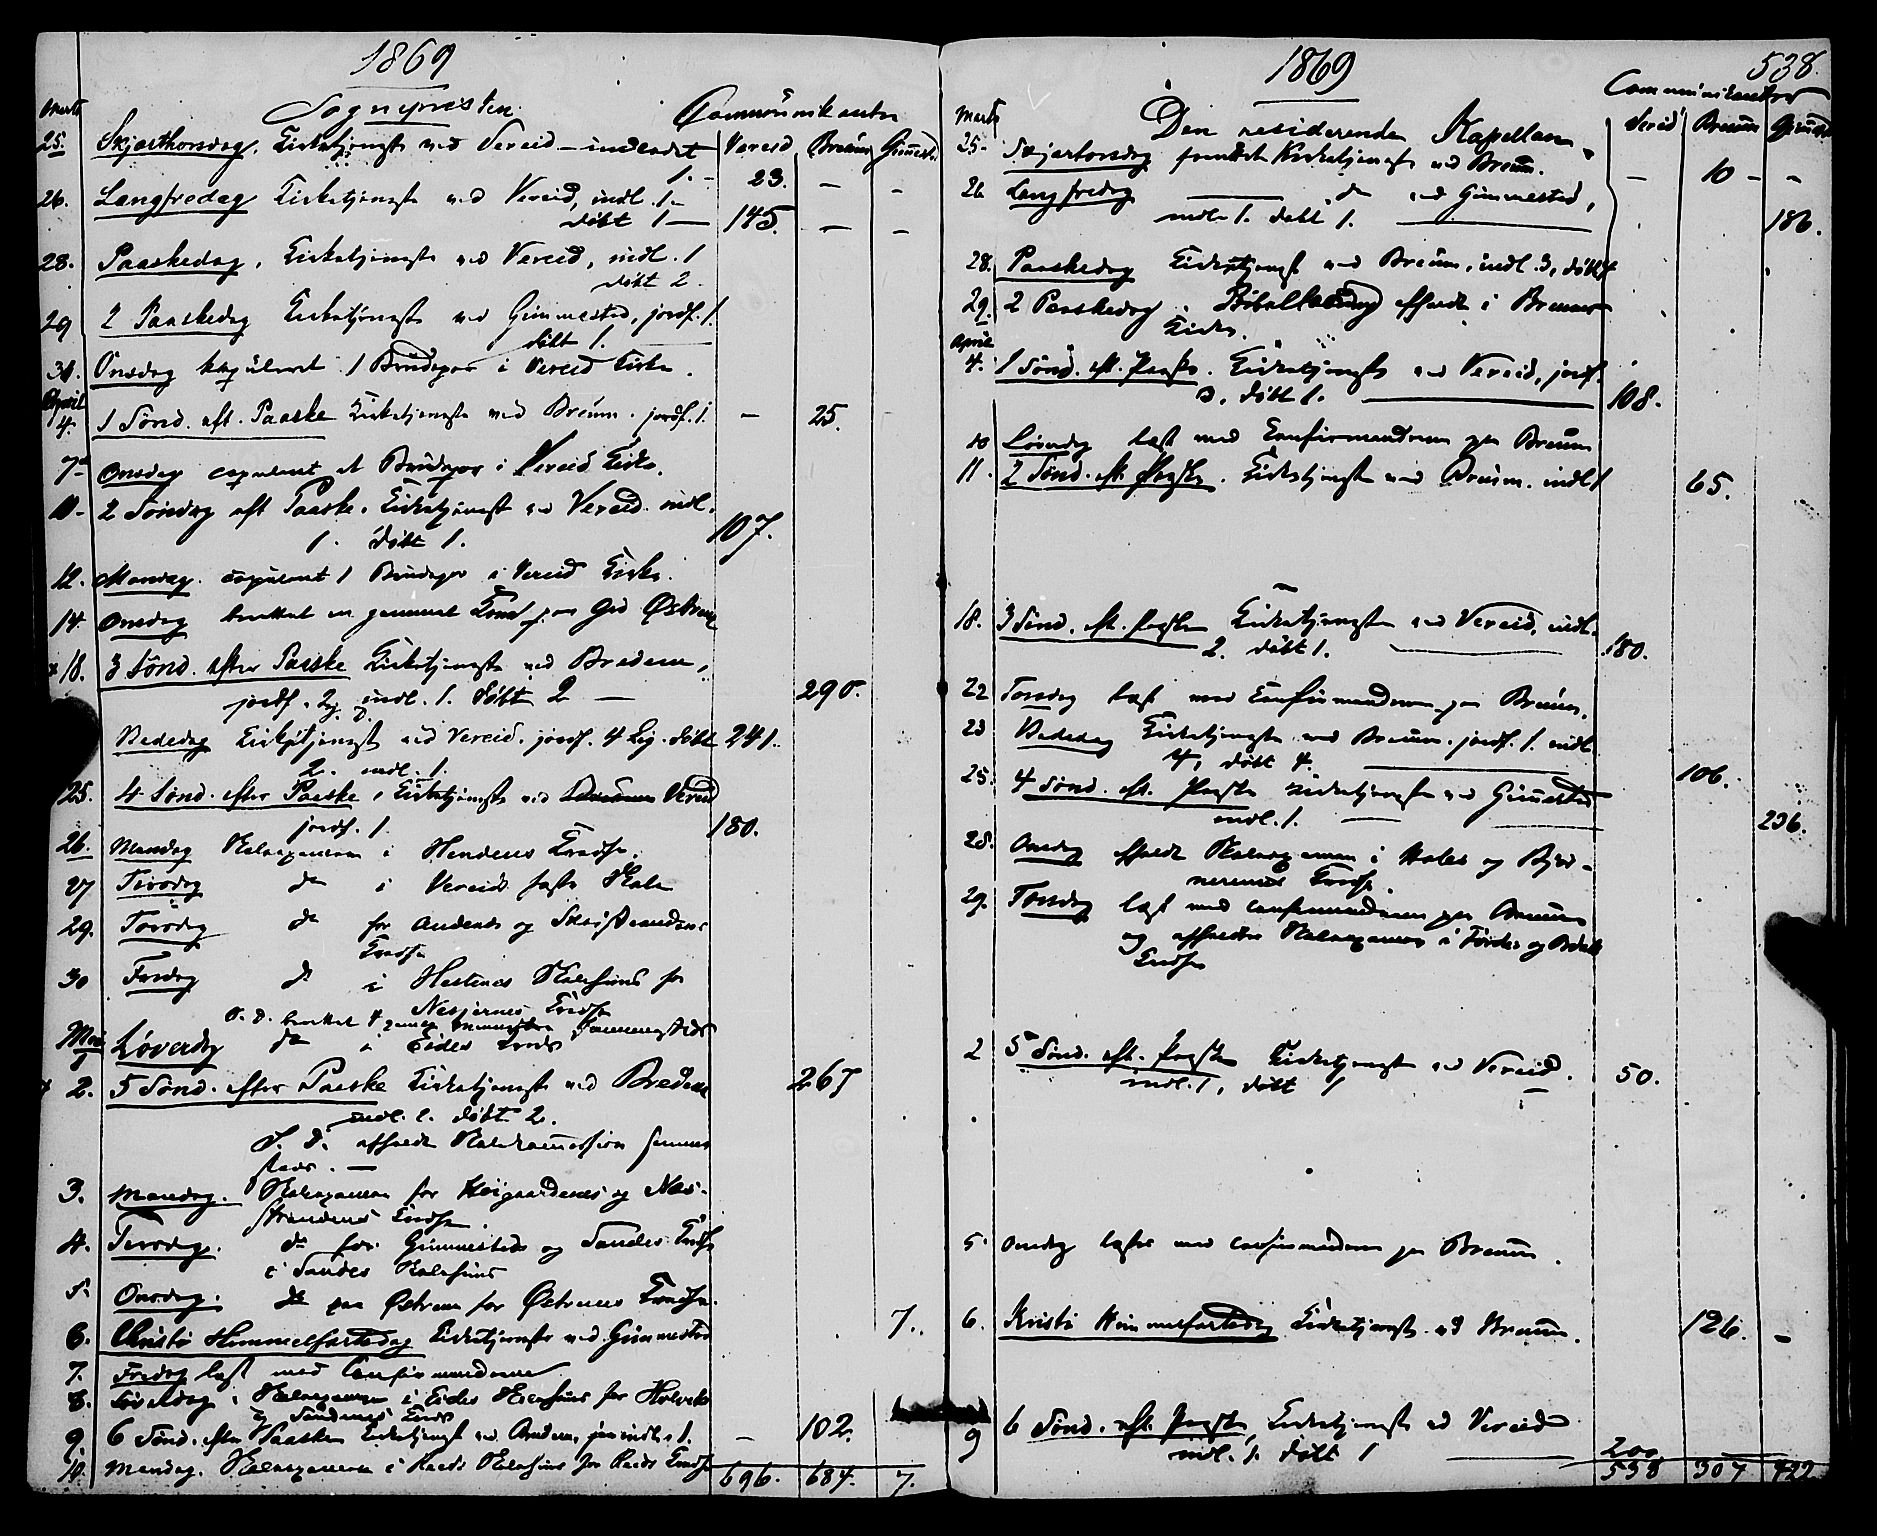 1869
Sognepresten
Communikanter
Marts
Vereid Breum Gimmestd
25. Skjærthorsdag. Kirketjeneste ved Vereid – indledet
1. – 23. – –
26. Langfredag Kirketjeneste ved Vereid, indl. 1 –
døbt 1 – 145. – –
28. Paaskedag, Kirketjeneste ved Vereid, indl. 1
døbt 2.
29 2 Paaskedag Kirketjeneste ved Gimmestad, jordf. 1.
døbt 1.
31. Onsdag kopuleret 1 Brudepar i Vereid Kirke.
April
4. 1 Sønd. eft. Paaske Kirketjeneste ved Breum. jordf. 1. – 25.
7 Onsdag copuleret et Brudepar i Vereid Kirke.
2 Søndag eft Paaske. Kirketjeneste ved Vereid. indl.
1. døbt 1. 107.
12. Mandag. copuleret 1 Brudepar i Vereid Kirke.
14. Onsdag berettet en gammel paa
18. 3 Sønd. efter Paaske Kirketjeneste ved Bredem,
jordf. 2, indl. 1. døbt 2 – 290.
Bededag Kirketjeneste ved Vereid. jordf. 4 Lig. døbt 241.
2. indl. 1.
25. 4 Sønd. efter Paaske, Kirketjeneste ved Vereid
jordf. 1. 180.
26. Mandag Skoleexamen i Hendens Kreds.
27 Tirsdag do i Vereids faste Skole
29. Torsdag do for Andenes og
Kredse
30 Fredag do i Hestenes Skolehuus for
Nesjernes Kredse
S. D. berettet 4 gamle Mennesker sammesteds
Mai
1 Løverdag do i Eides Kreds
2. 5 Sønd. efter Paaske Kirketjeneste ved Bredem 267
indl. døbt 2.
S. D. afholdt Skolekommission sammesteds. –
3. Mandag. Skoleexamen for Høigaardenes og Nes-
strandens Kredse.
4. Tirsdag. do for Gimmestads og Sandes Kredse
i Sandes Skolehuus
5. Onsdag. do paa Østrem for Østrems Kredse.
6. Christi Himmelfartsdag Kirketjeneste ved Gimmestad 7.
7. Fredag læst med Confirmanderne
8. Løverdag. Skoleexamen i Eides Skolehuus for
og Sandenes Kreds
9. 6 Sønd. efter Paaske Kirketjeneste ved indl. 1. – 102.
10. Mandag. Skoleexamen i Reeds Skolehuus for Reeds Kredse
696. 684. 7.
1869
538.
Den residerende Kapellan.
Communikanter
Marts
Vereid Breum Gimmestd
25. Skjærtorsdag forrettet Kirketjeneste ved Breum. – 10 – –
26 Langfredag do ved Gimmestad,
indl. 1. døbt 1. 186.
28. Paaskedag Kirketjenest ved Breum, indl. 3, døbt
29. 2 Paaskedag. Bibellæsning afholdt i Breum
Kirke.
April
4. 1 Sønd. eft. Paaske. Kirketjeneste ved Vereid, jordf.
3, døbt 1. 108.
10 Løverdag læst med Confirmanderne paa Breum
11. 2 Sønd. eft. Paaske. Kirketjeneste ved Breum. indl 1 65.
18. 3 Sønd. eft. Paaske Kirketjeneste ved Vereid, indl.
2. døbt 1. 180.
22 Torsdag læst med Confirmanderne paa Breum.
23 Bededag Kirketjeneste ved Breum. jordf. 1. indl
4, døbt 4. 106.
25. 4 Sønd. eft. Paaske Kirketjeneste ved Gimmestad
indl. 1. 236.
28. Onsdag afholdt Skoleexamen i Holes og Bjør-
nerenes Kredse.
29. Torsdag læst med Confirmanderne paa Breum
og afholdtes Skoleexamen i Førdes og
Kredse
2 5 Sønd. eft. Paaske Kirketjeneste ved Vereid.
indl. 1, døbt 1 – 50.
5 Onsdag læstes med Confirmanderne paa Breum.
6. Kristi Himmelfartsdag Kirketjeneste ved Breum. 126. –
9 6 Sønd. eft. Paaske, Kirketjeneste ved Vereid
indl. 1. døbt 1 200
538 307 422